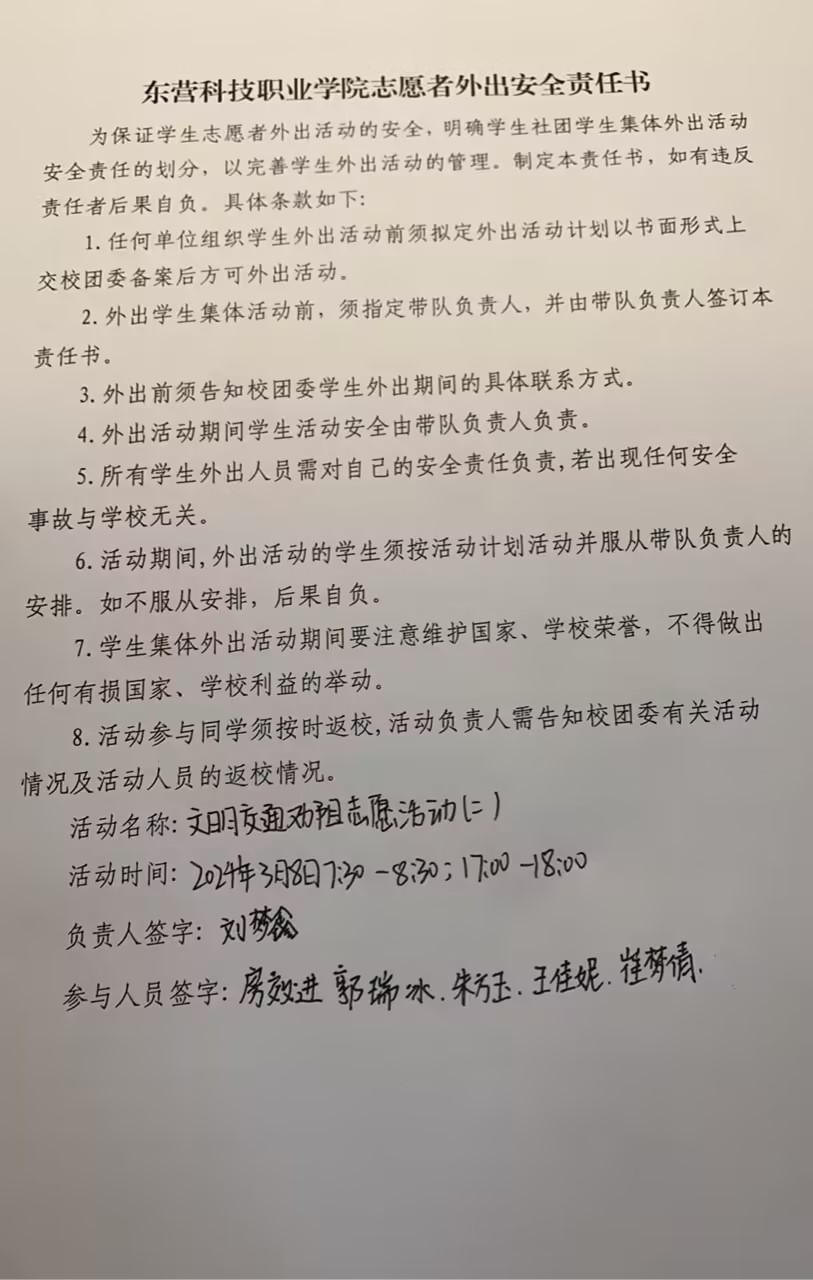 东营科技职业学院志愿者外出安全责任书
为保证学生志愿者外出活动的安全，明确学生社团学生集体外出活动
安全责任的划分，以完善学生外出活动的管理。制定本责任书，如有违反
责任者后果自负。具体条款如下：
1. 任何单位组织学生外出活动前须拟定外出活动计划以书面形式上
交校团委备案后方可外出活动。
2. 外出学生集体活动前，须指定带队负责人，并由带队负责人签订本
责任书。
3. 外出前须告知校团委学生外出期间的具体联系方式。
4. 外出活动期间学生活动安全由带队负责人负责。
5. 所有学生外出人员需对自己的安全责任负责,若出现任何安全
事故与学校无关。
6. 活动期间,外出活动的学生须按活动计划活动并服从带队负责人的
安排。如不服从安排，后果自负。
7. 学生集体外出活动期间要注意维护国家、学校荣誉，不得做出
任何有损国家、学校利益的举动。
8. 活动参与同学须按时返校,活动负责人需告知校团委有关活动
情况及活动人员的返校情况。
活动名称: 文明交通劝阻志愿活动(二)
活动时间: 2024年3月8日7:30-8:30; 17:00-18:00
负责人签字: 刘梦鑫
参与人员签字: 房效进 郭瑞冰. 朱方玉. 王佳妮. 崔梦倩.